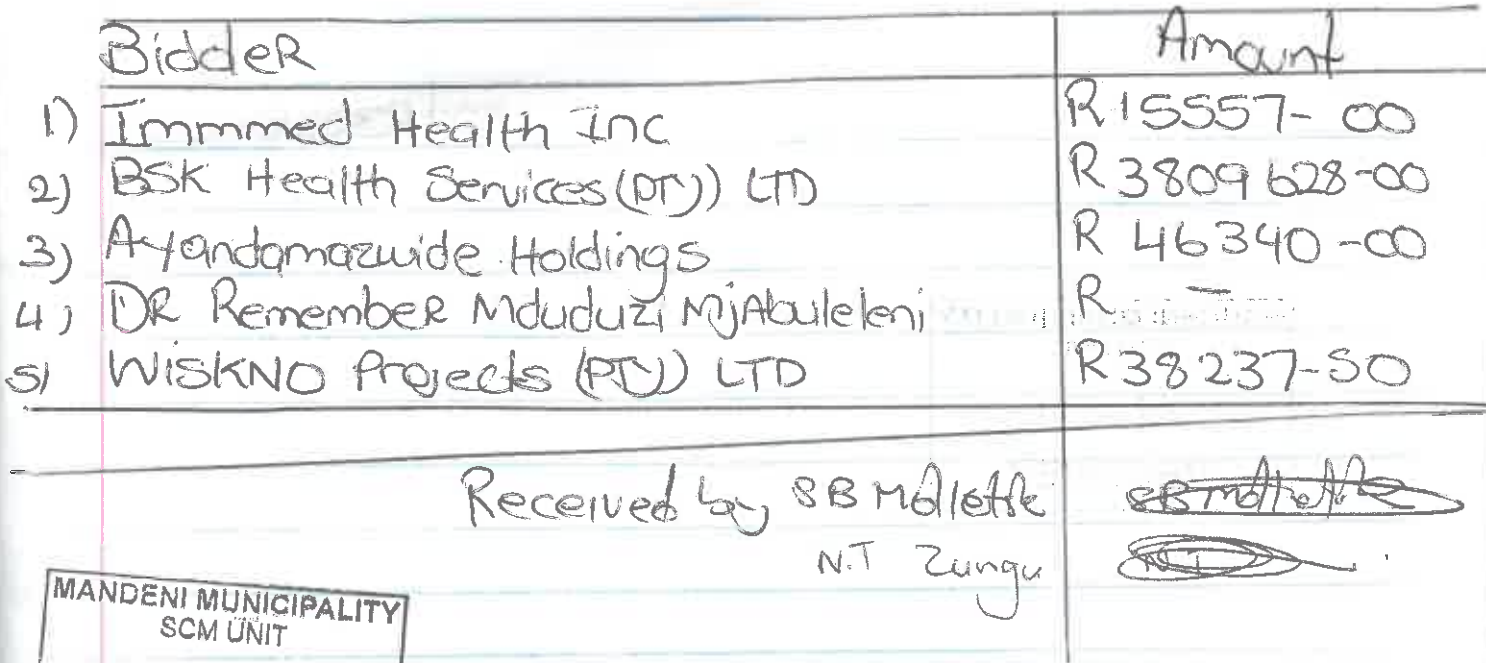 Bidder Amount
1) Immmed Health Inc R 15557-00
2) BSK Health Services (PTY) LTD R 3809 628-00
3) Ayandamazwide Holdings R 46340-00
4) DR Remember Mduduzi MjAbuleleni R -
5) WISKNO Projects (PTY) LTD R 38237-50
Received by SB
N.T Zungu NT
MANDENI MUNICIPALITY
SCM UNIT